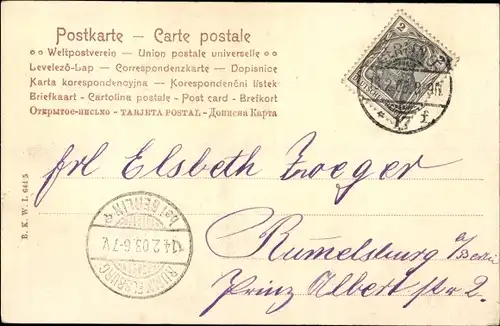 Postkarte — Carte postale
Weltpostverein — Union postale universelle
Levelező-Lap — Correspondenzkarte — Dopisnice
Karta korespondencyjna — Korespondenční lístek
Briefkaart - Cartolina postale - Post card - Brefkort
Открытое-письмо - TARJETA POSTAL - Дописна Карта
2
BERLIN
8-9N
17 f
Frl Elsbeth Zoeger
bei BERLIN
14.2.03.6-7V.
RUMMELSBURG
Rumelsburg a/Berlin
Prinz Albert str 2.
B. K. W. I. 641-5